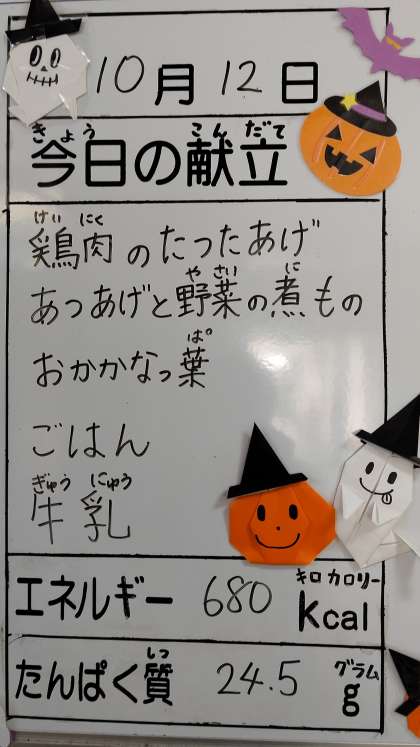 10月12日
きょう こんだて
今日の献立
けい にく
鶏肉のたったあげ
や さい に
あつあげと野菜の煮もの
ぱ
おかかなっ葉
ごはん
ぎゅう にゅう
牛乳
キロカロリー
エネルギー 680 kcal
しつ グラム
たんぱく質 24.5 g